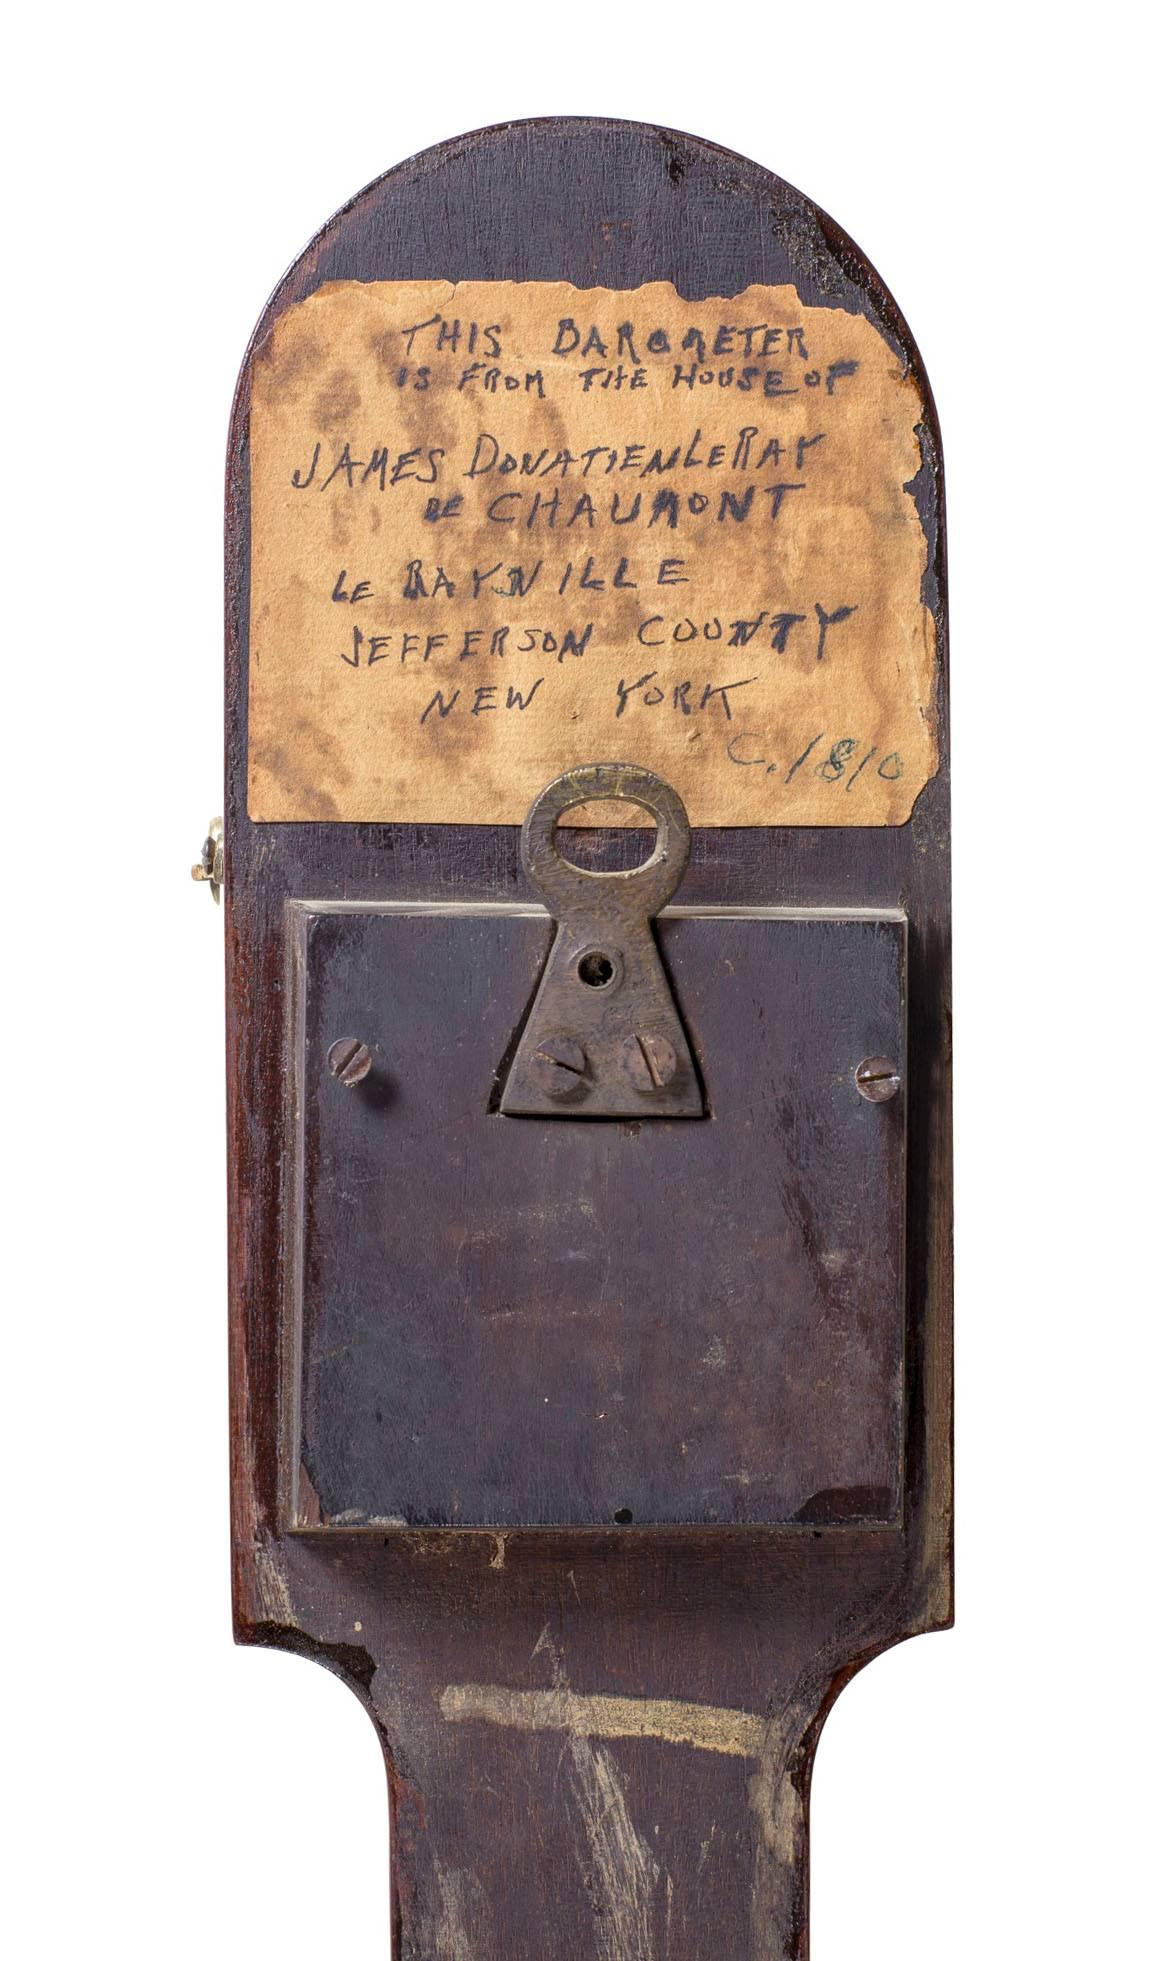 THIS BAROMETER
IS FROM THE HOUSE OF
JAMES DONATIEN LERAY
DE CHAUMONT
LE RAYVILLE
JEFFERSON COUNTY
NEW YORK
C. 1810